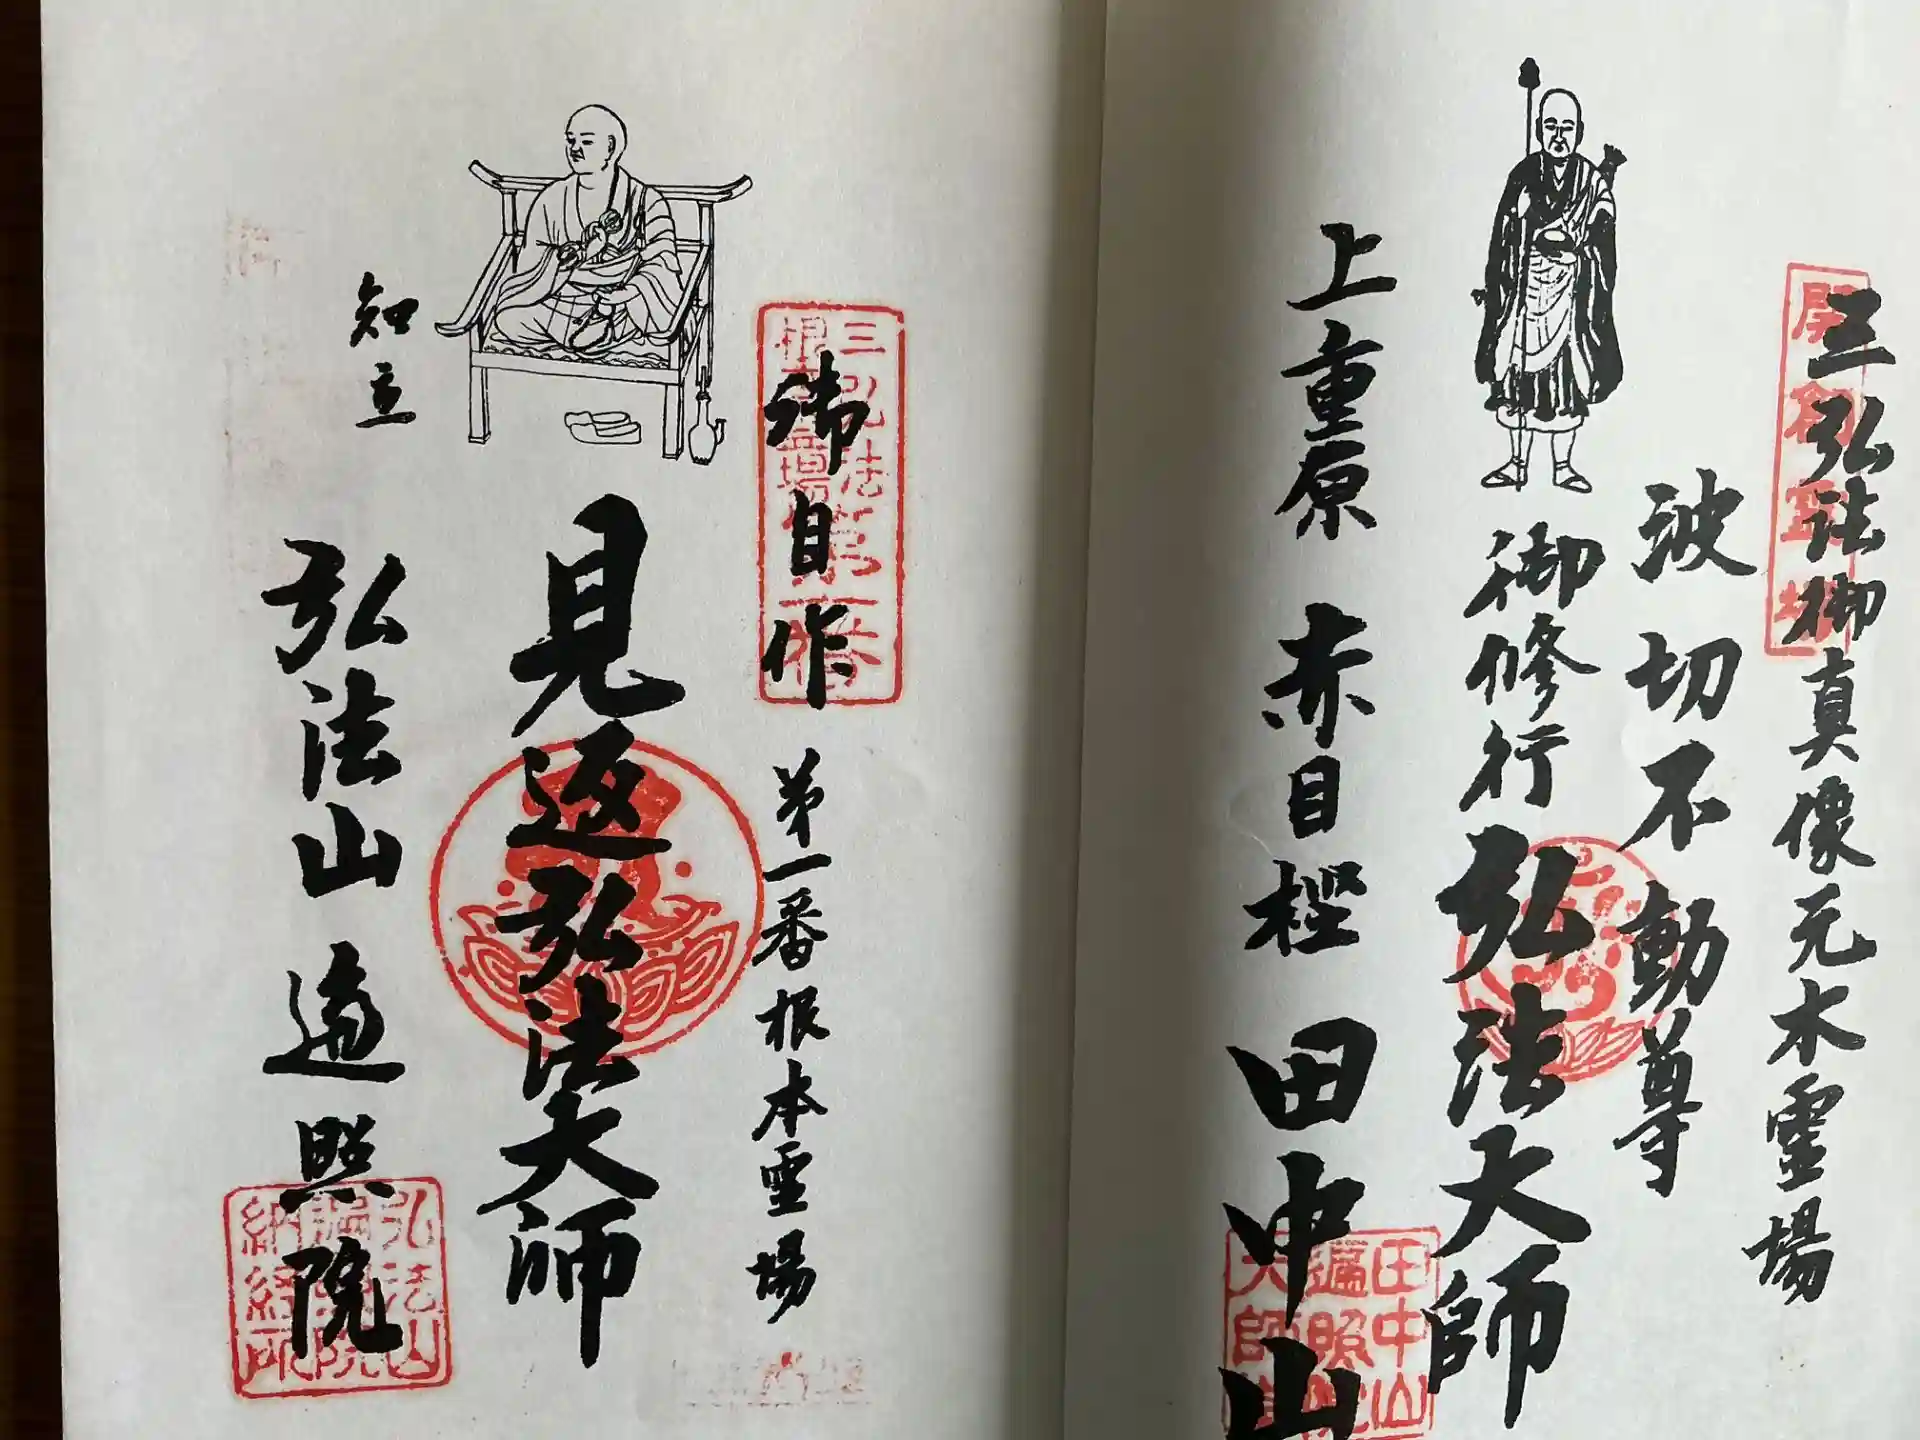 三弘法御真像元木霊場
波切不動尊
御修行弘法大師
上重原 赤目樫 田中山
田中山
大師
御自作
三弘法第一番
第一番根本霊場
見返弘法大師
知立
弘法山 遍照院
弘法山
納経所